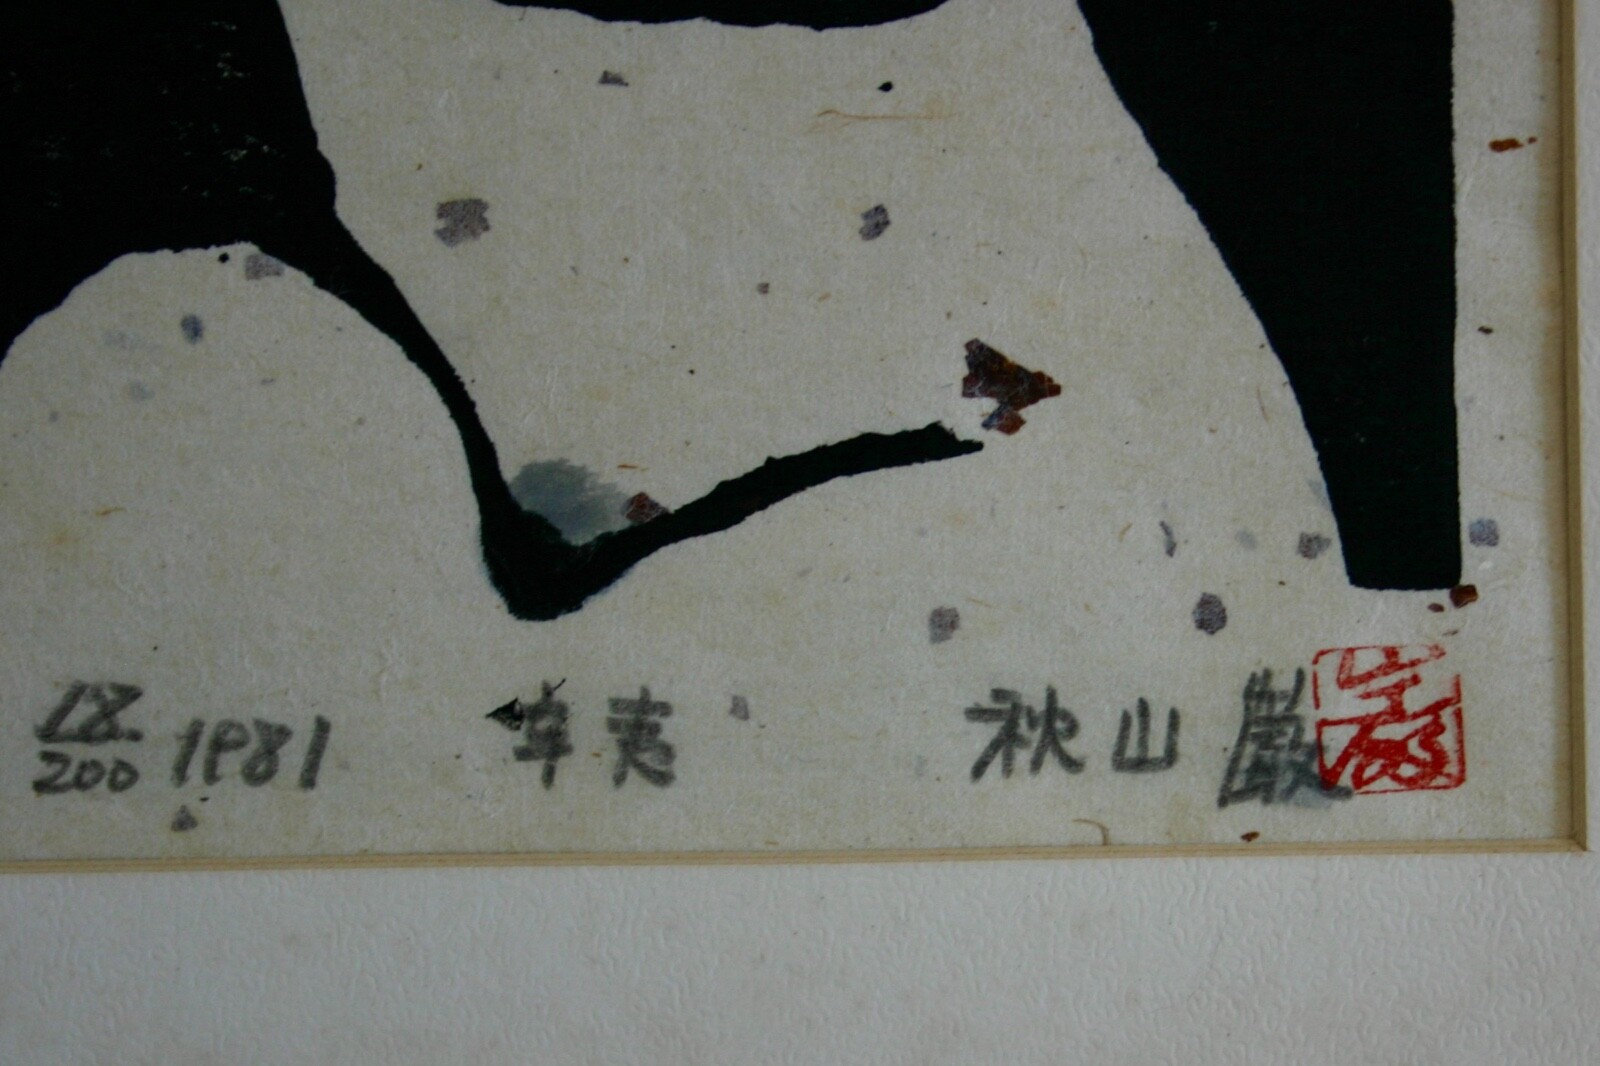 18/200 1981 辛夷 秋山巌